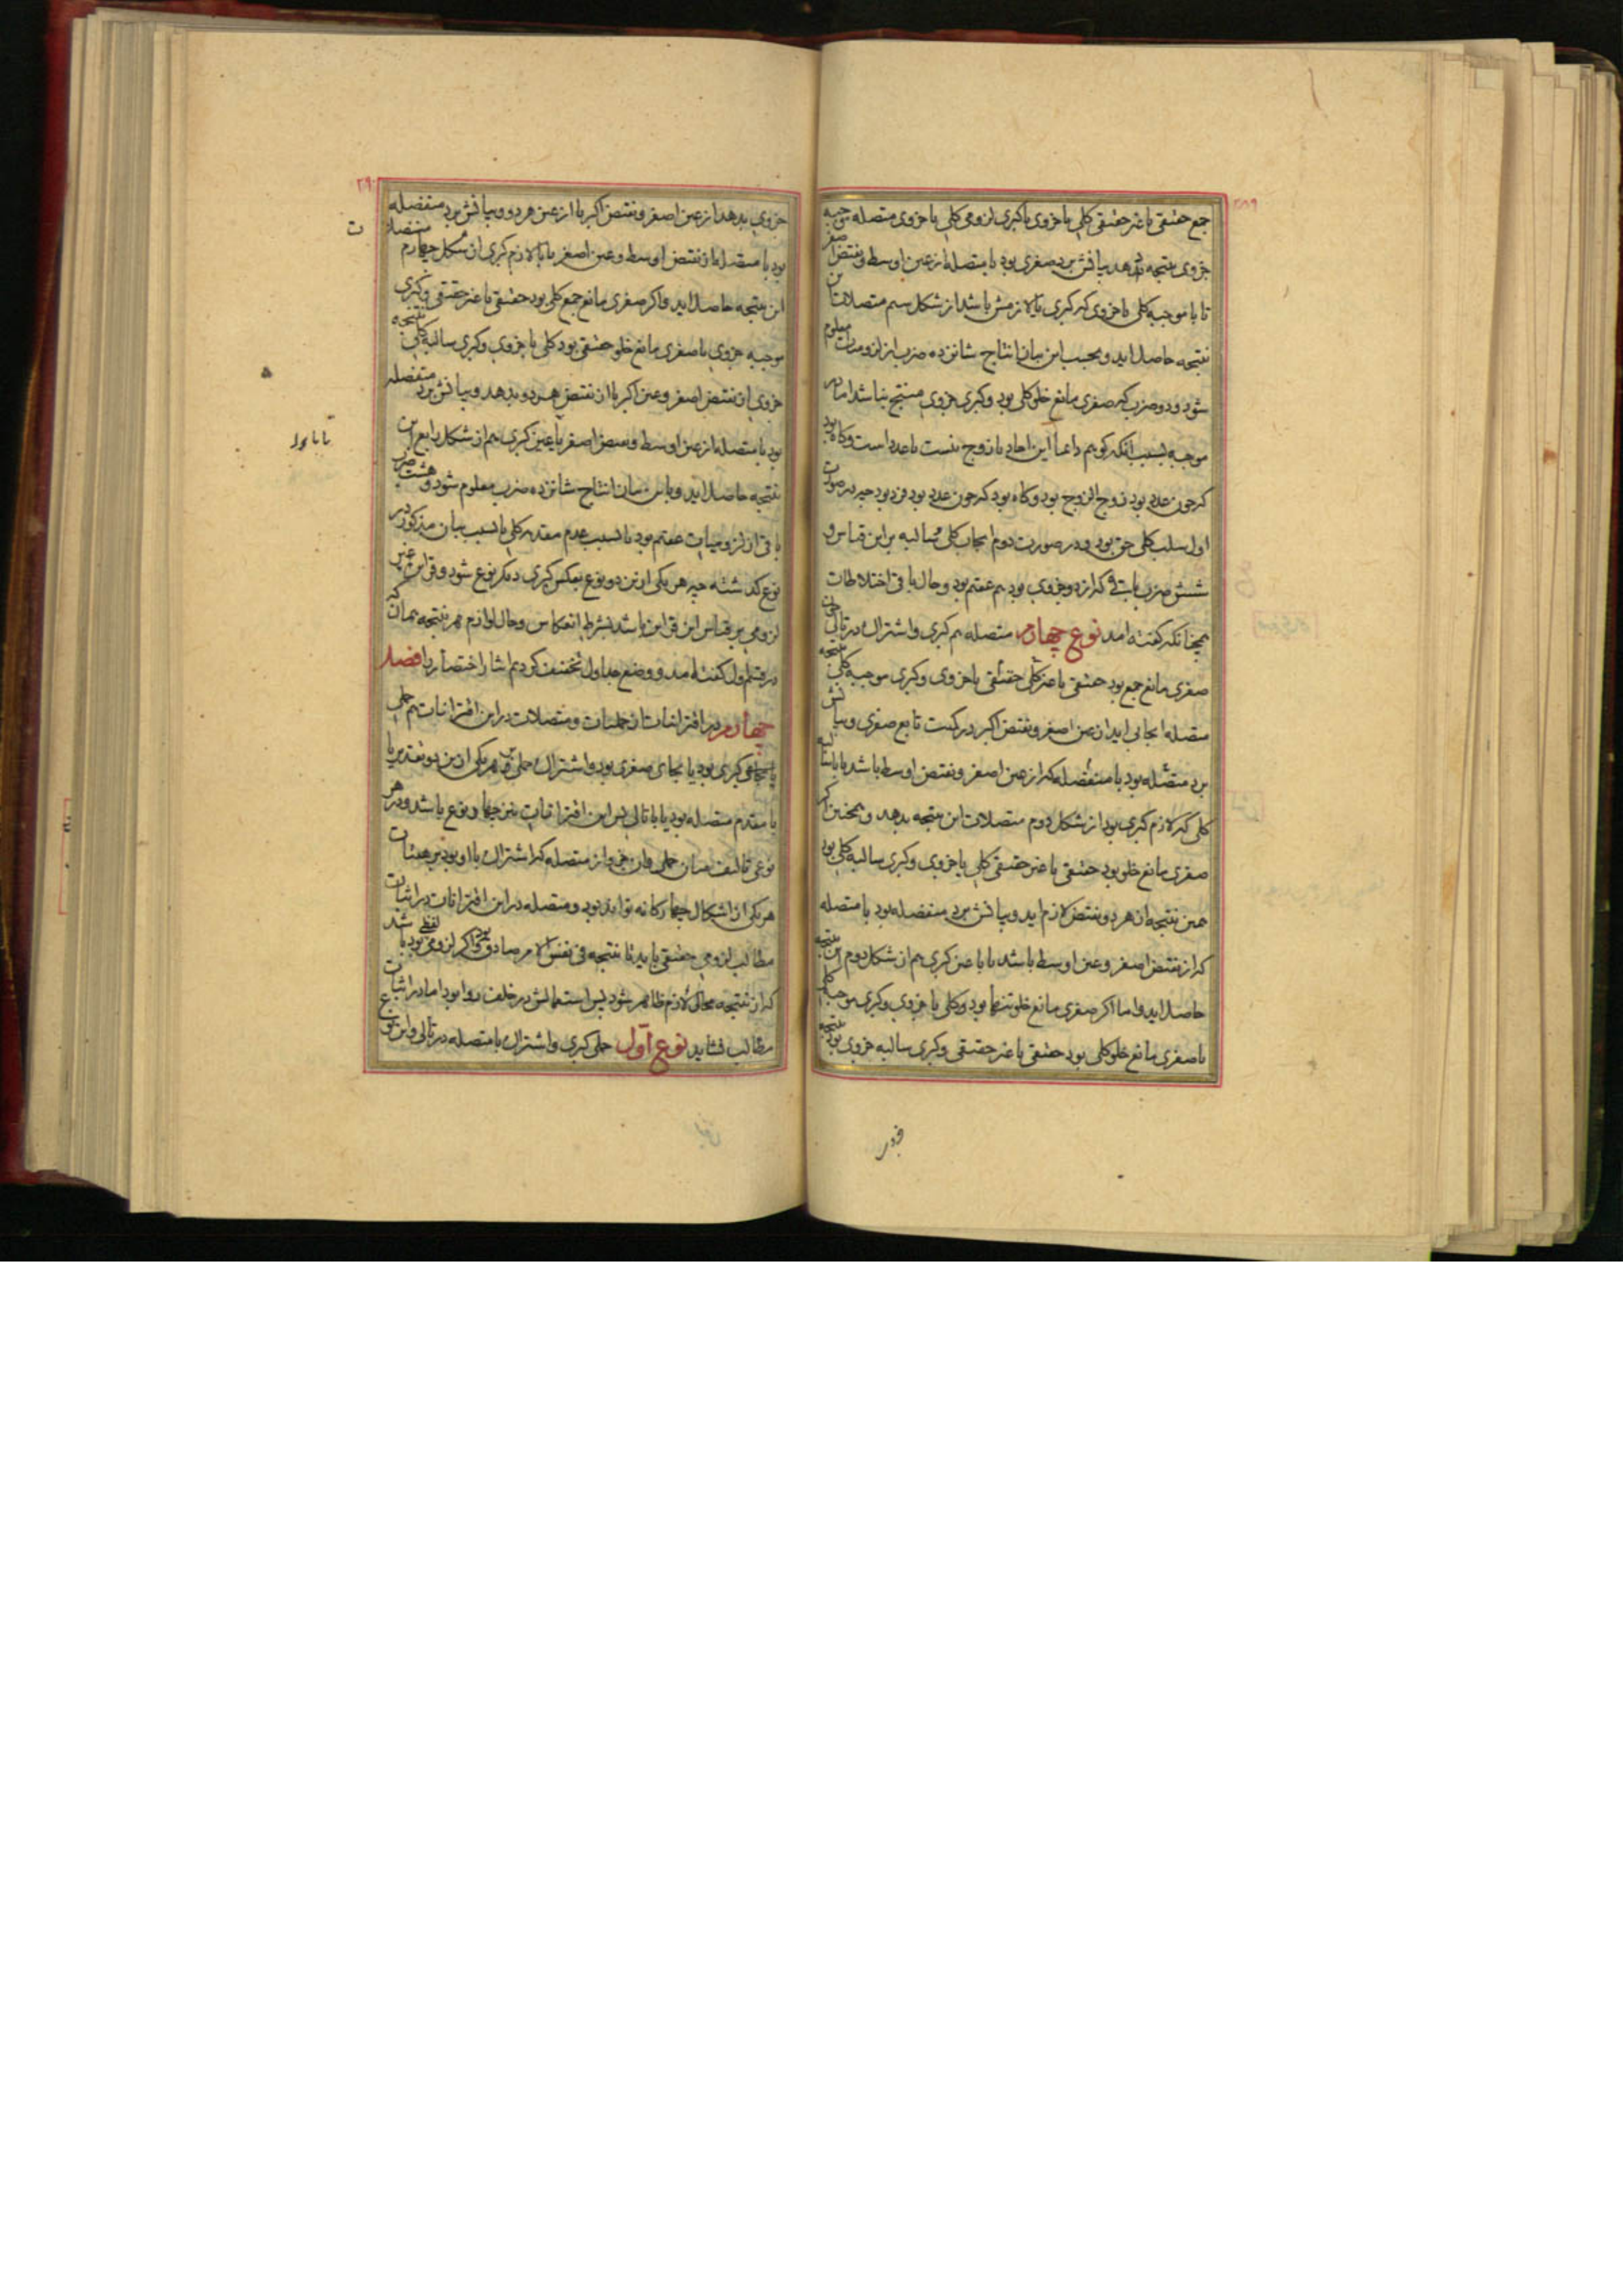 ۲۵۹
جمع حقیقی یا غیر حقیقی کلی یا جزوی با کبری لزومی کلی یا جزوی متصله موجبه
جزوی نتیجه دهد بیانش برد صغری بود با متصله از عین اوسط و نقیض اصغر
تا با موجبه کلی یا جزوی که کبری یا لازمش باشد از شکل سیم متصلات این
نتیجه حاصل اید و بحسب این بیان انتاج شانزده ضرب از لزومیات معلوم
شود و دو ضرب که صغری مانع خلو کلی بود و کبری جزوی منتج نباشد اما در
موجبه بسبب آنکه کوییم دائما این احاد یا زوج نیست یا عدد است و کاه بود
که چون عدد بود زوج الزوج بود و کاه بود که چون عدد بود فرد بود چه در صورت
اول سلب کلی حق بود و در صورت دوم ایجاب کلی و سالبه بر این قیاس و
شش ضرب باقی که از دو جزوی بود هم عقیم بود و حال باقی اختلاطات
همچنانکه کفته امد نوع چهارم متصله هم کبری و اشتراک در تالی چون
صغری مانع جمع بود حقیقی یا غیر حقیقی کلی یا جزوی و کبری موجبه کلی نتیجه
متصله ایجابی اید از عین اصغر و نقیض اکبر در کمیت تابع صغری و بیانش
برد منفصله بود با متصله که از عین اصغر و نقیض اوسط باشد تا با سالبه
کلی که لازم کبری بود از شکل دوم متصلات این نتیجه بدهد و همچنین اکر
صغری مانع خلو بود حقیقی یا غیر حقیقی کلی یا جزوی و کبری سالبه کلی بود
همین نتیجه از هر دو نقیض لازم اید و بیانش برد منفصله بود با متصله
که از نقیض اصغر و عین اوسط باشد تا با عین کبری هم از شکل دوم این نتیجه
حاصل اید و اما اکر صغری مانع خلو تنها بود و کلی یا جزوی و کبری موجبه کلی
یا صغری مانع خلو کلی بود حقیقی یا غیر حقیقی و کبری سالبه جزوی بود نتیجه
۲۹۰
جزوی بدهد از عین اصغر و نقیض اکبر یا از عین هر دو و بیانش برد منفصله
بود با متصله از نقیض اوسط و عین اصغر تا با لازم کبری از شکل چهارم متصلات
این نتیجه حاصل اید و اکر صغری مانع جمع کلی بود حقیقی یا غیر حقیقی و کبری
موجبه جزوی یا صغری مانع خلو حقیقی بود کلی یا جزوی و کبری سالبه کلی نتیجه
جزوی از نقیض اصغر و عین اکبر یا از نقیض هر دو بدهد و بیانش برد منفصله
بود با متصله از عین اوسط و نقیض اصغر تا با عین کبری هم از شکل رابع این
نتیجه حاصل اید و باین بیان انتاج شانزده ضرب معلوم شود و هشت ضرب
باقی از لزومیات عقیم بود یا بسبب عدم مقدمه کلی یا بسبب بیان مذکور در
نوع کذشته چه هر یکی از این دو نوع بعکس کبری دیکر نوع شود و قراین غیر
لزومی بر قیاس این قراین باشد بشرط انعکاس و حال لوازم هر نتیجه همان که
در قسم اول کفته امد و وضع جداول تخفیف کردیم ایثار اختصار را فصل
چهارم در اقترانیات از حملیات و متصلات در این اقترانیات هم حملی
بجای کبری بود یا بجای صغری بود و اشتراک حملی در هر یکی از این دو تقدیر یا
با مقدم متصله بود یا با تالی پس این اقترانیات نیز چهار نوع باشد و در هر
نوعی تالیف میان حملی و ان جزو از متصله که اشتراک با او بود بر هیئات
هر یکی از اشکال چهارکانه تواند بود و متصله در این اقترانات در اثبات
مطالب لزومی حقیقی باید تا نتیجه فی نفس الامر صادق بود و اکر لزومی لفظی بود باشد
که از نتیجه محال لازم ظاهر شود پس استعمالش در خلف روا بود اما در اثبات
مطالب نشاید نوع اول حملی کبری و اشتراک با متصله در تالی و این نوع